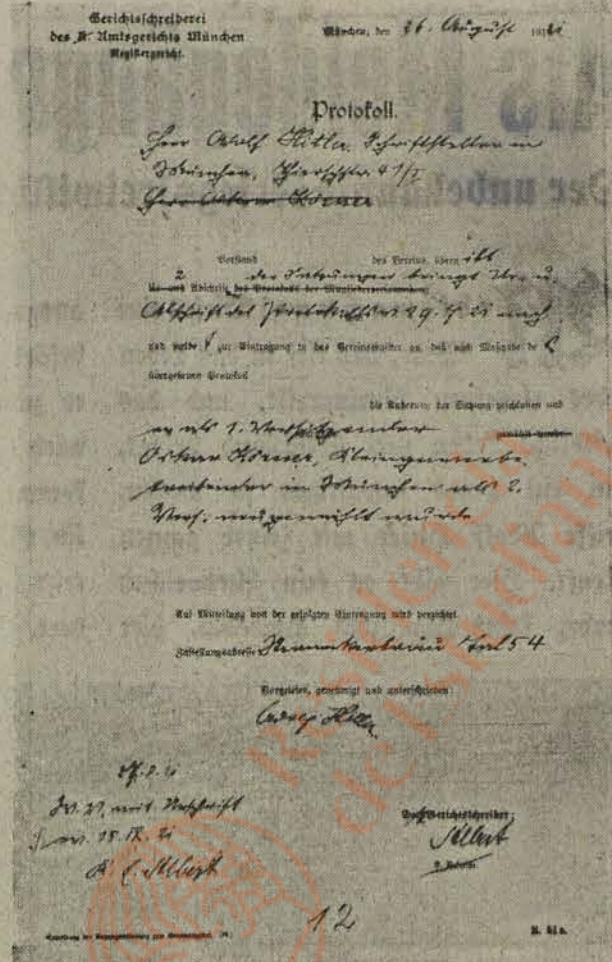 Gerichtsschreiberei
des K. Amtsgerichts München
Registergericht.
München, den 26. August 1921
Protokoll.
Herr Adolf Hitler, Schriftsteller in
München, Thierschstr. 41/I
Herr Oskar Körner
Vorstand des Vereins, über
2 der Satzungen bringt Ur- u.
Abschrift des Protokolls v. 29. 7. 21 nach
und meldet zur Eintragung in das Vereinsregister an, daß nach Maßgabe des
übergebenen Protokolls
die Änderung der Satzung beschlossen und
er als 1. Vorsitzender
Oskar Körner, Kleingewerbe-
treibender in München als 2.
Vors. neugewählt wurde
Auf Mitteilung von der erfolgten Eintragung wird verzichtet.
Zustellungsadresse Sterneckerbräu Tal 54
Vorgelesen, genehmigt und unterschrieben:
Adolf Hitler
Der Gerichtsschreiber:
Albert
mit Urschrift
15. IX. 21
Albert
12
Residencia
de Estudiantes